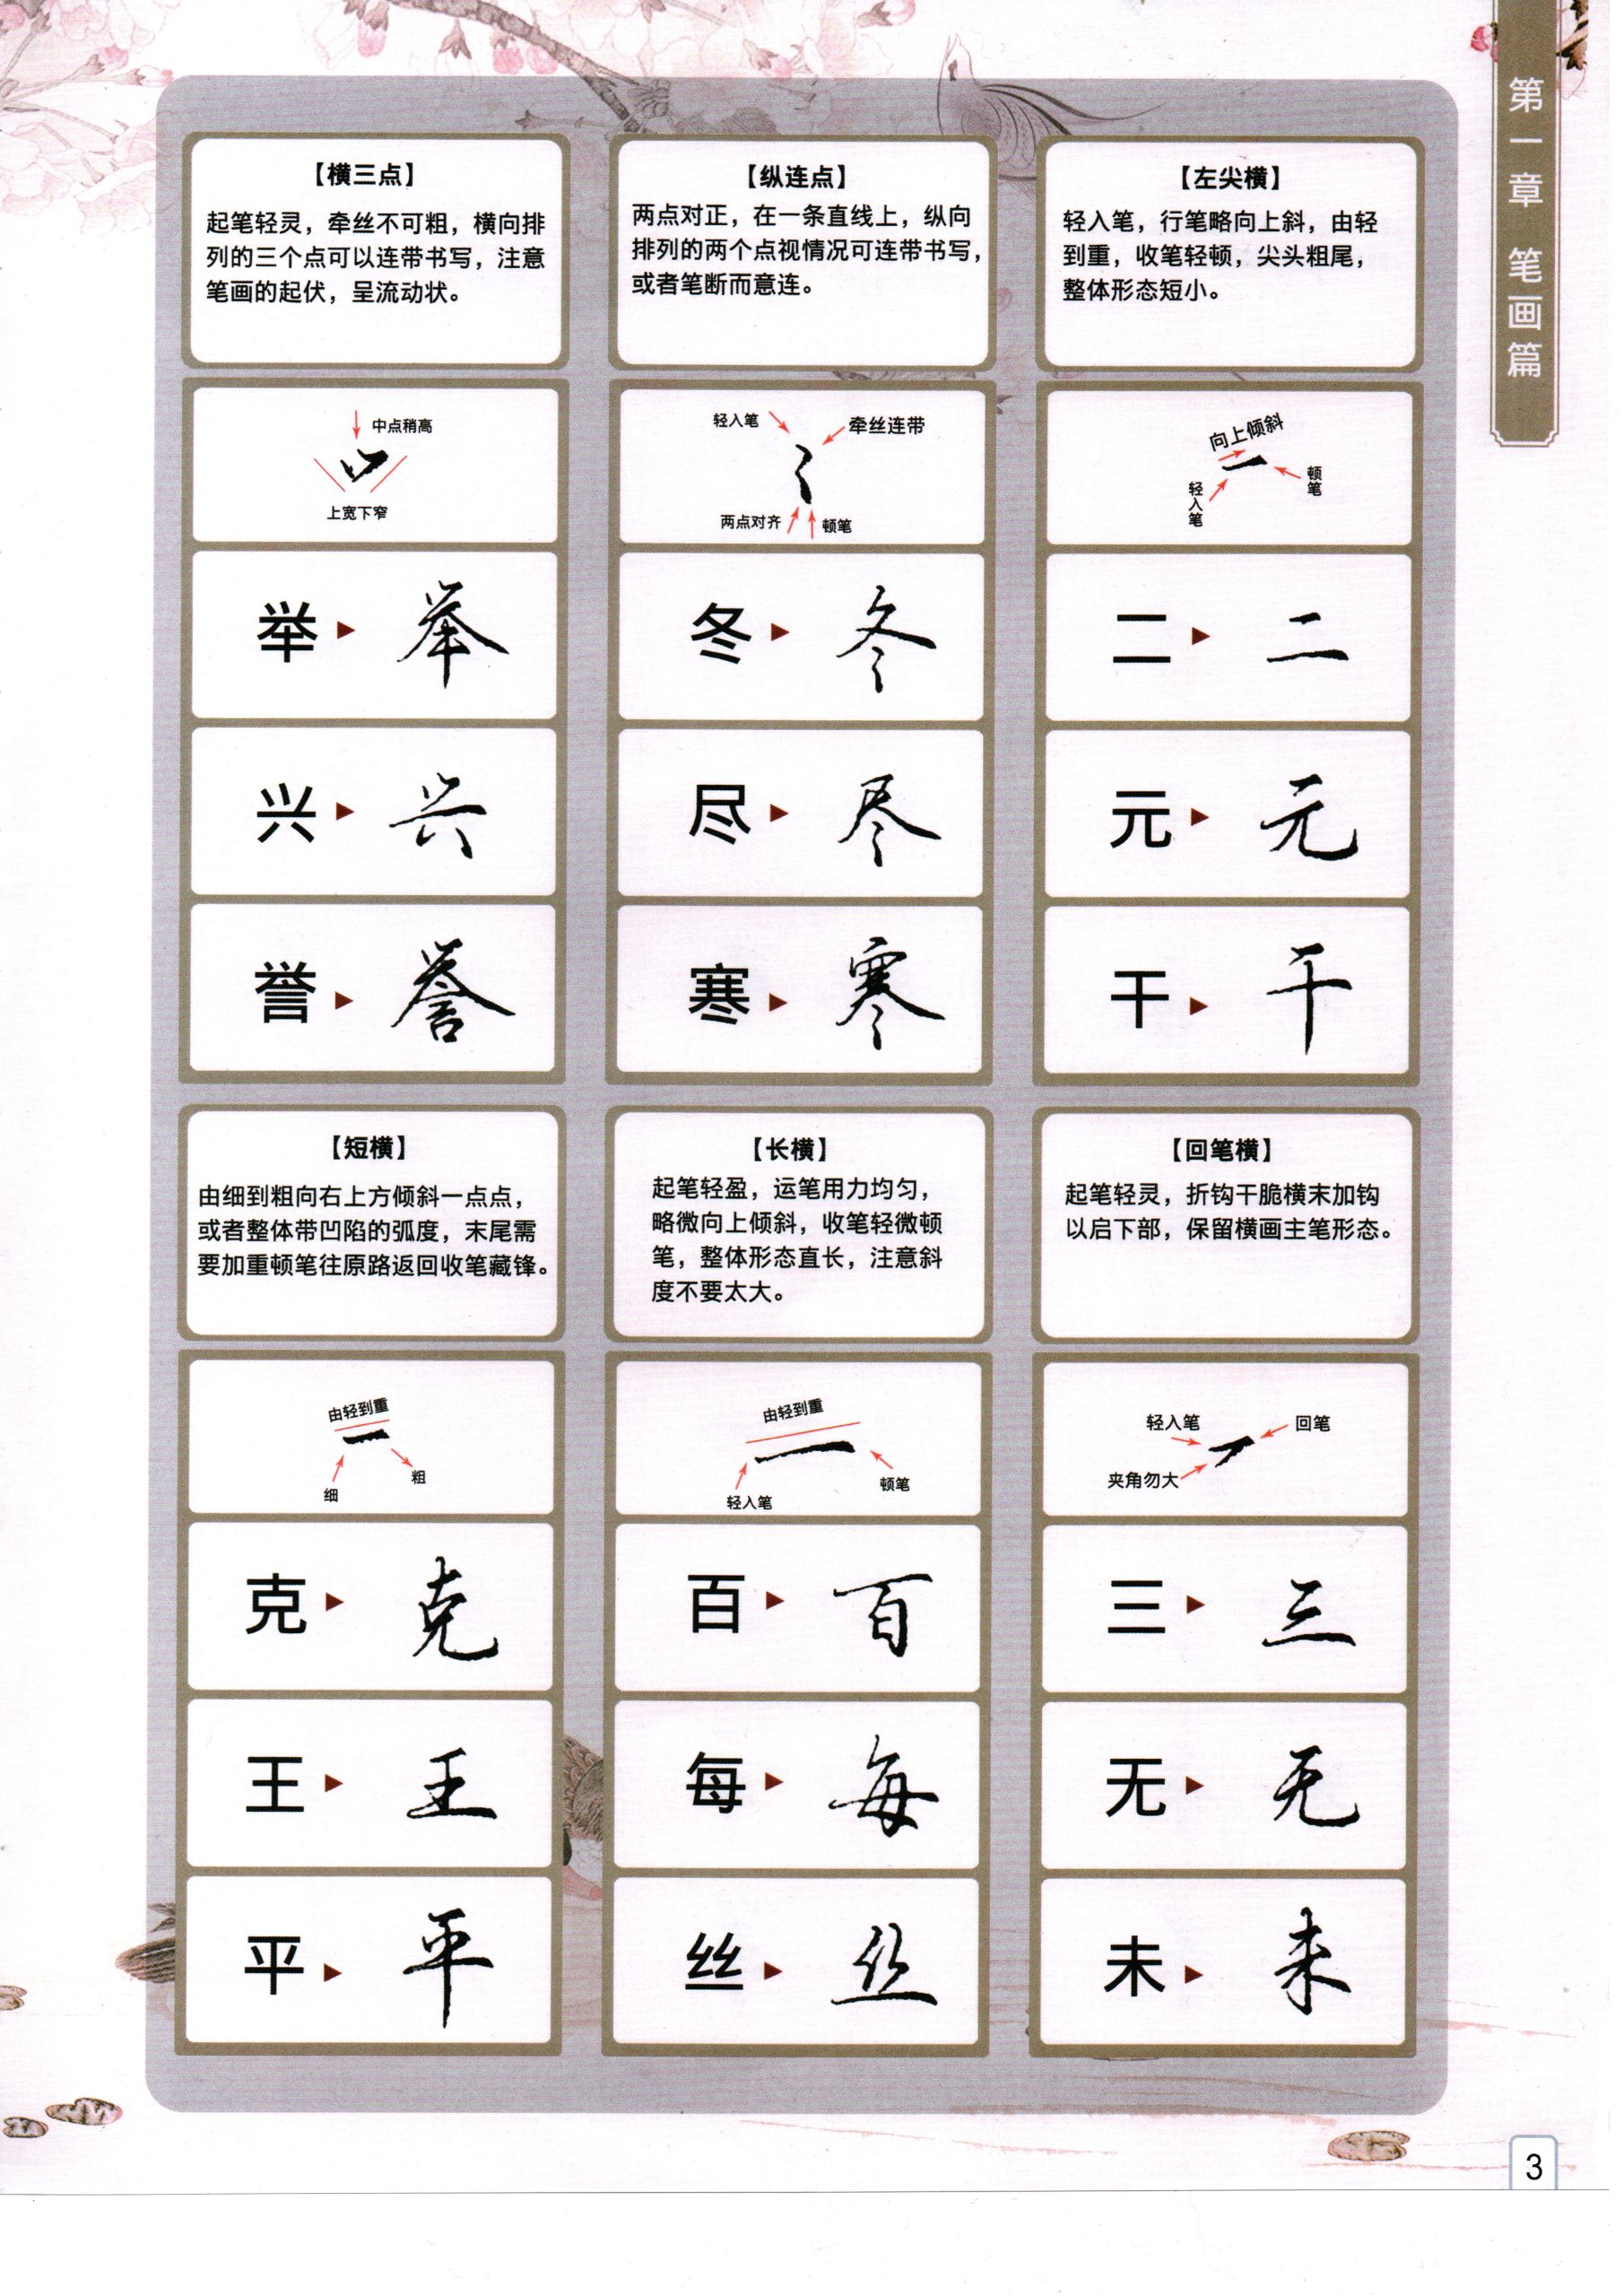 第一章 笔画篇
【横三点】
起笔轻灵，牵丝不可粗，横向排
列的三个点可以连带书写，注意
笔画的起伏，呈流动状。
中点稍高
上宽下窄
举 举
兴 兴
誉 誉
【纵连点】
两点对正，在一条直线上，纵向
排列的两个点视情况可连带书写，
或者笔断而意连。
轻入笔
牵丝连带
两点对齐
顿笔
冬 冬
尽 尽
寒 寒
【左尖横】
轻入笔，行笔略向上斜，由轻
到重，收笔轻顿，尖头粗尾，
整体形态短小。
向上倾斜
轻入笔
顿笔
二 二
元 元
干 干
【短横】
由细到粗向右上方倾斜一点点，
或者整体带凹陷的弧度，末尾需
要加重顿笔往原路返回收笔藏锋。
由轻到重
细
粗
克 克
王 王
平 平
【长横】
起笔轻盈，运笔用力均匀，
略微向上倾斜，收笔轻微顿
笔，整体形态直长，注意斜
度不要太大。
由轻到重
轻入笔
顿笔
百 百
每 每
丝 丝
【回笔横】
起笔轻灵，折钩干脆横末加钩
以启下部，保留横画主笔形态。
轻入笔
回笔
夹角勿大
三 三
无 无
未 未
3